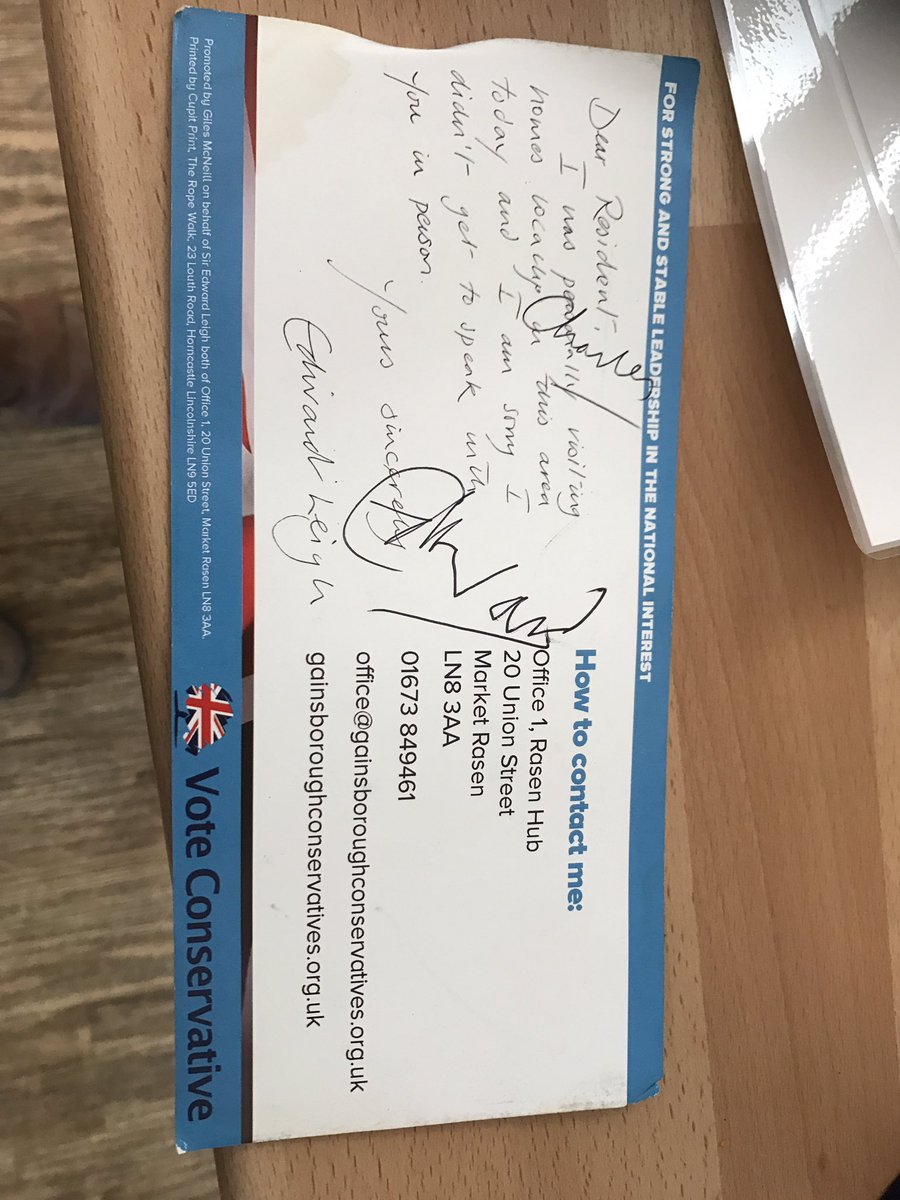 FOR STRONG AND STABLE LEADERSHIP IN THE NATIONAL INTEREST
Dear Resident,
I was personally visiting
homes locally in this area
today and I am sorry I
didn't get to speak with
you in person.
Yours sincerely,
Edward Leigh
How to contact me:
Office 1, Rasen Hub
20 Union Street
Market Rasen
LN8 3AA
01673 849461
office@gainsboroughconservatives.org.uk
gainsboroughconservatives.org.uk
Promoted by Giles McNeill on behalf of Sir Edward Leigh both of Office 1, 20 Union Street, Market Rasen LN8 3AA.
Printed by Cupit Print, The Rope Walk, 23 Louth Road, Horncastle Lincolnshire LN9 5ED
Vote Conservative